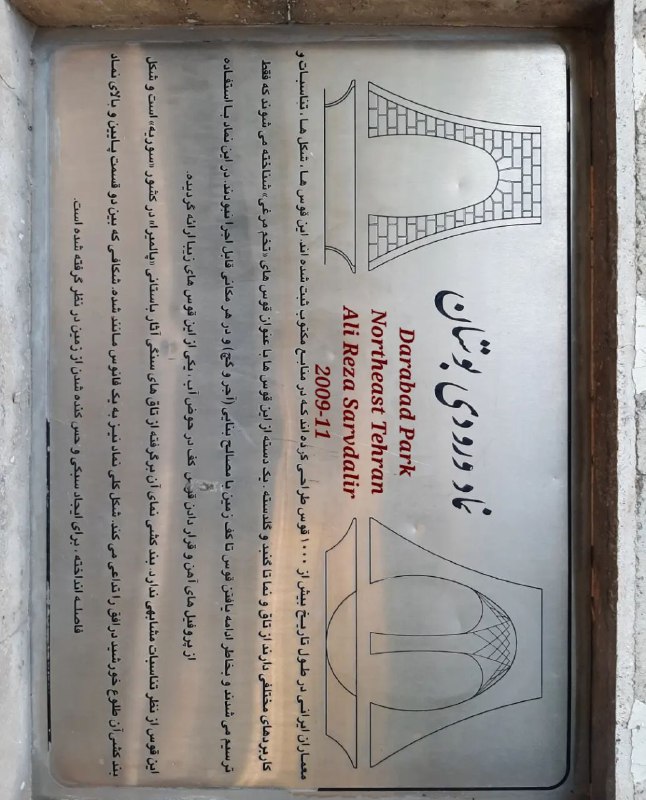 نماد ورودی بوستان
Darabad Park
Northeast Tehran
Ali Reza Sarvdalir
2009-11
معماران ایرانی در طول تاریخ بیش از ۱۰۰۰ قوس طراحی کرده اند که در منابع مکتوب ثبت شده اند. این قوس ها، شکل ها، تناسبات و
کاربردهای مختلفی دارند از تاق و نما تا گنبد و گلدسته. یک دسته از این قوس ها با عنوان قوس های «تخم مرغی» شناخته می شوند که فقط
ترسیم می شدند و بخاطر ادامه یافتن قوس تا کف زمین با مصالح بنایی (آجر و گچ) و در هر مکانی قابل اجرا نبودند. در این نماد با استفاده
از پروفیل های آهن و قرار دادن قوس کف در حوض آب، یکی از این قوس های زیبا ارائه گردیده.
این قوس از نظر تناسبات مشابهی ندارد. بند کشی نمای آن برگرفته از تاق های سنگی آثار باستانی «پالمیرا» در کشور «سوریه» است و شکل
بند کشی آن طلوع خورشید در افق را تداعی می کند. شکل کلی نماد نیز به یک فانوس مانند شده. شکافی که بین دو قسمت پایین و بالای نماد
فاصله انداخته، برای ایجاد سبکی و حس کنده شدن از زمین در نظر گرفته شده است.